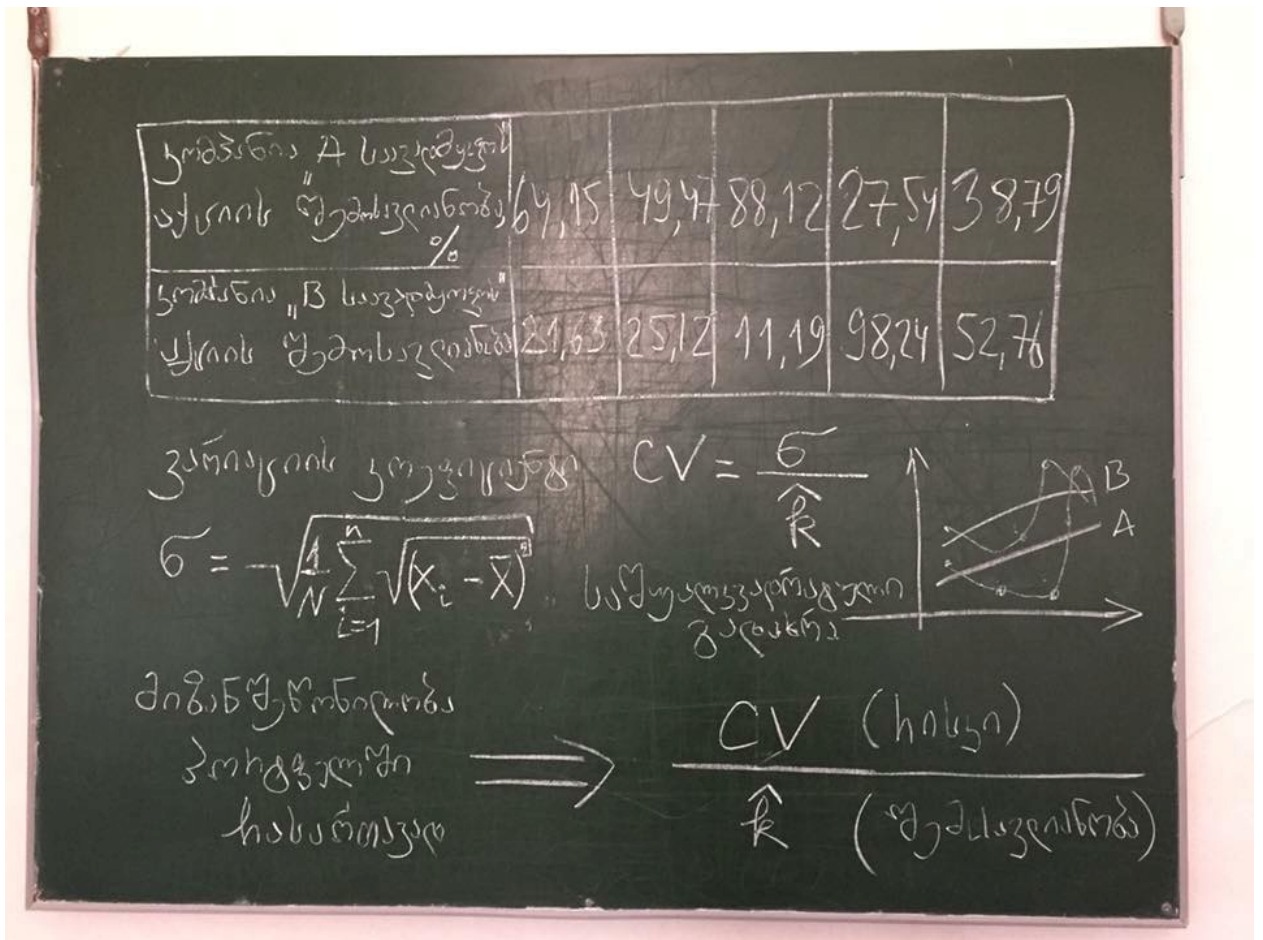 კომპანია "A საავადმყოფოს"
აქციის შემოსავლიანობა, %
64,15 49,47 88,12 27,54 38,79
კომპანია „B საავადმყოფოს"
აქციის შემოსავლიანობა
21,63 25,12 11,19 98,24 52,76
ვარიაციის კოეფიციენტი CV = σ / k̂
B
A
σ = √(1/N ∑ i=1 n √(Xᵢ − X̄)²)
საშუალკვადრატული
გადახრა
მიზანშეწონილობა
პორტფელში
ჩასართავად
⇒
CV (რისკი)
k̂ (შემოსავლიანობა)